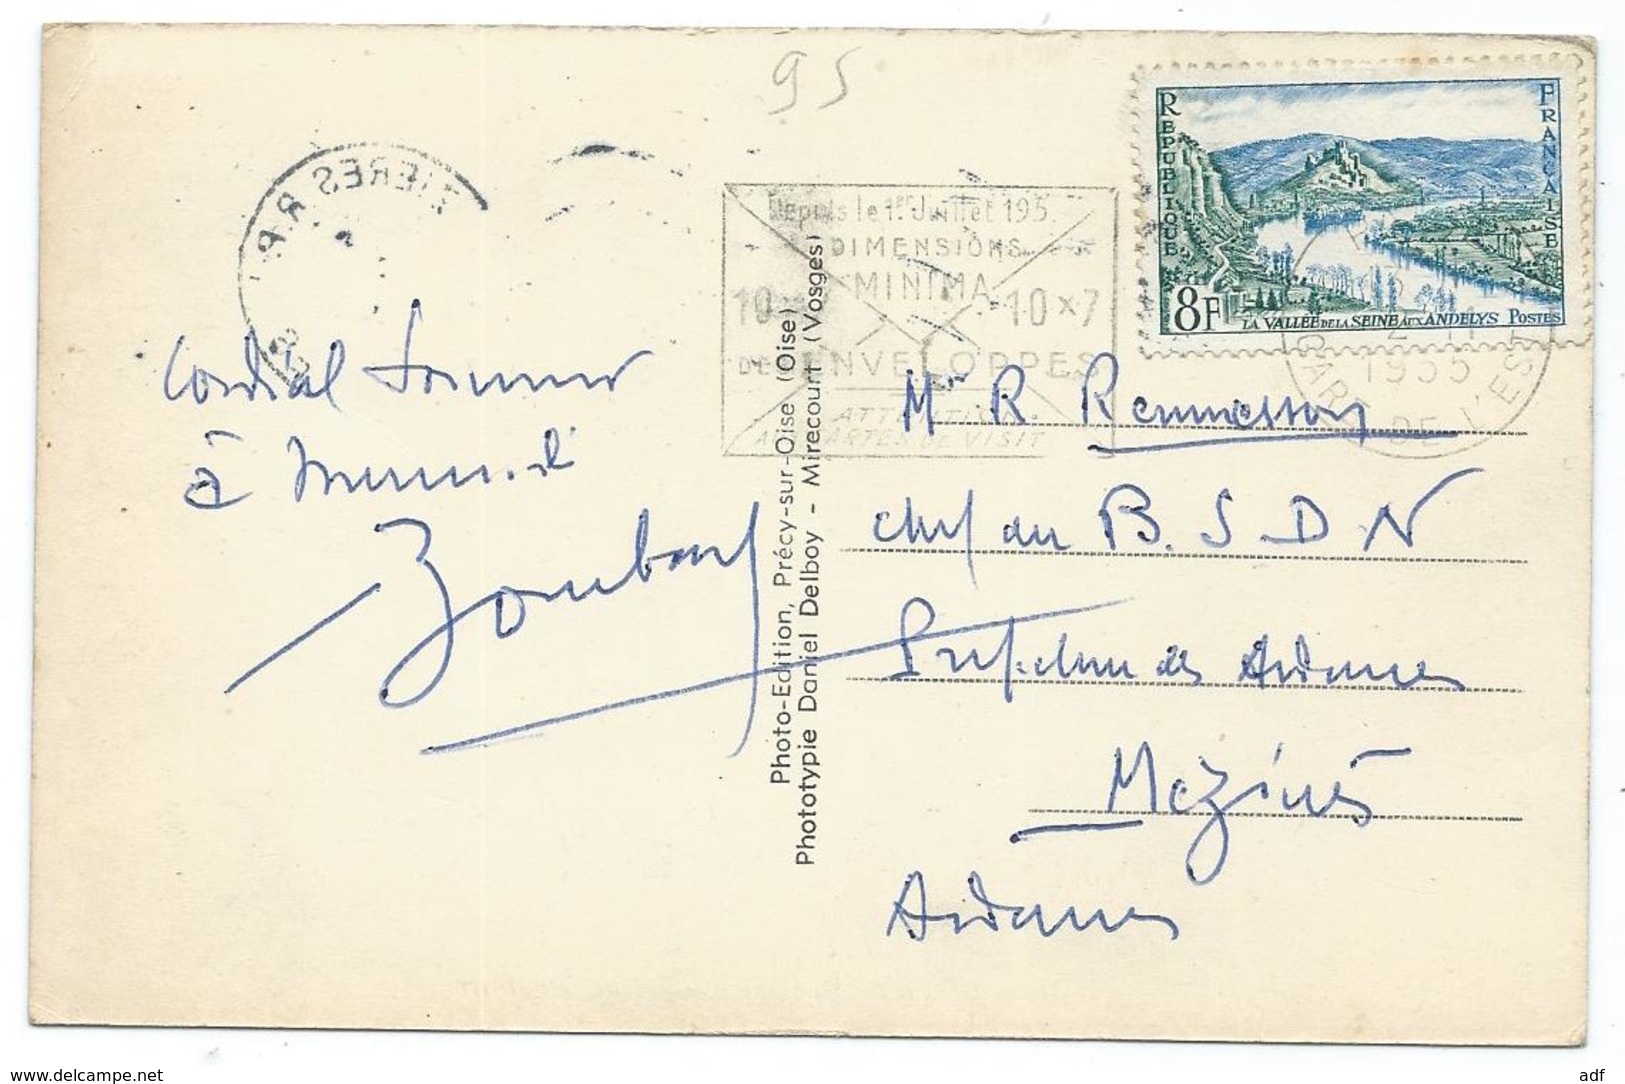 95
RÉPUBLIQUE
FRANÇAISE
8F
LA VALLÉE DE LA SEINE AUX ANDELYS POSTES
Depuis le 1er Juillet 195
DIMENSIONS
MINIMA
10 x 7
10 x 7
DES ENVELOPPES
ATTENTION
AUX CARTES DE VISIT
PARIS
1955
GARE DE L'EST
ZIERES R.P.
Cordial Souvenir
à
Photo-Edition, Précy-sur-Oise (Oise)
Phototypie Daniel Delboy - Mirecourt (Vosges)
Mr R Rennesson
chef du B. S. D N
Préfecture des Ardennes
Mézières
Ardennes
www.delcampe.net
adf